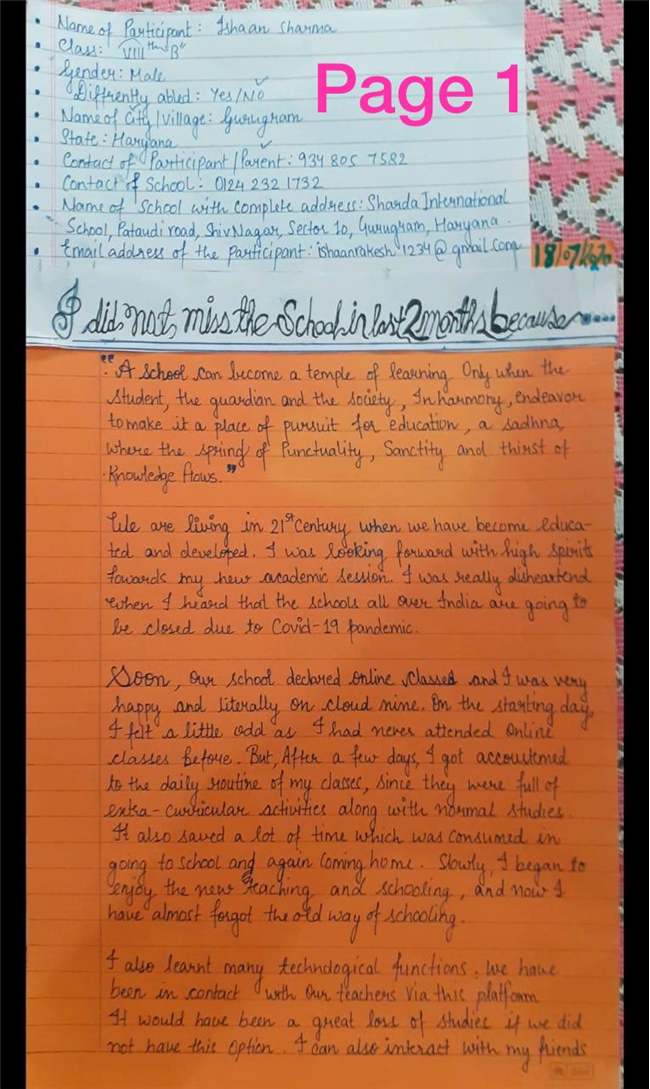 Name of Participant: Ishaan Sharma
Class: VIII th "B"
Gender: Male
Diffrently abled: Yes/No
Page 1
Name of City/Village: Gurugram
State: Haryana
Contact of Participant/Parent: 934 805 7582
Contact of School: 0124 232 1732
Name of School with complete address: Sharda International
School, Pataudi road, Shiv Nagar, Sector 10, Gurugram, Haryana.
Email address of the participant: ishaanrakesh1234@gmail.com
18/07/2020
I did not miss the School in last 2 months because
"A school can become a temple of learning Only when the
student, the guardian and the society, In harmony, endeavor
to make it a place of pursuit for education, a sadhna,
where the spring of Punctuality, Sanctity and thirst of
Knowledge flows."
We are living in 21st Century when we have become educa-
ted and developed. I was looking forward with high spirits
towards my new academic session. I was really disheartend
when I heard that the schools all over India are going to
be closed due to Covid-19 pandemic.
Soon, Our school declared online classes and I was very
happy and literally on cloud nine. On the starting day,
I felt a little odd as I had never attended online
classes before. But, After a few days, I got accoustemed
to the daily routine of my classes, since they were full of
extra-curricular activities along with normal studies.
It also saved a lot of time which was consumed in
going to school and again coming home. Slowly, I began to
enjoy the new teaching and schooling, and now I
have almost forgot the old way of schooling.
I also learnt many technological functions. We have
been in contact with our teachers via this platform
It would have been a great loss of studies if we did
not have this option. I can also interact with my friends